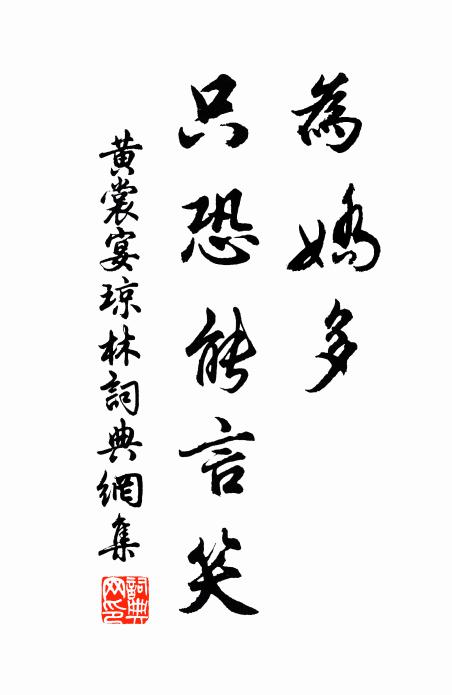 為嬌多
只恐能言笑
黃裳宴琼林詞典網集
詞典網印